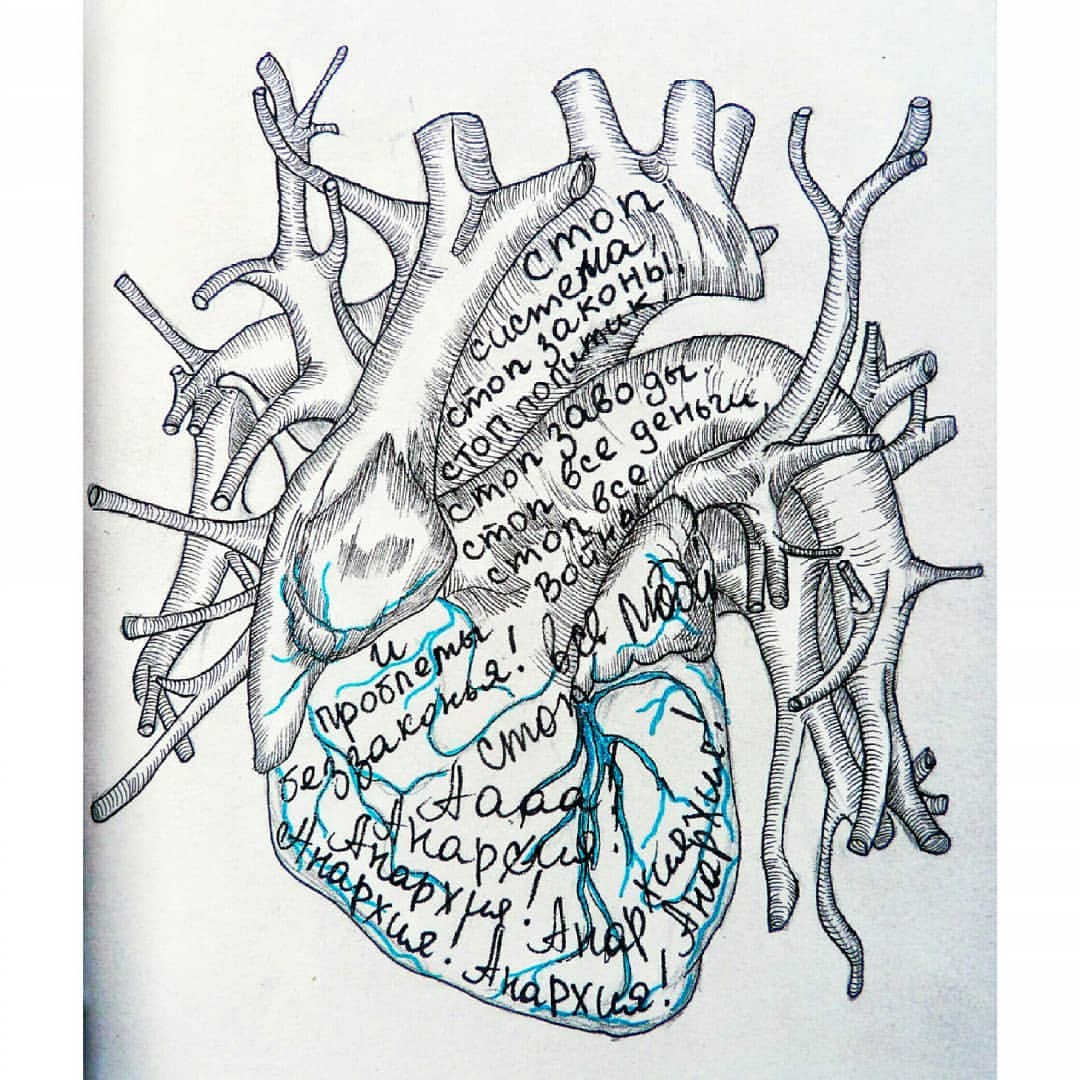 стоп
система,
стоп законы,
стоп политик,
стоп заводы.
стоп все деньги,
стоп все
войны
и
проблемы
беззаконья!
стоп все люди
Аааа!
Анархия!
Анархия!
Анархия!
Анархия!
Анархия!
Анархия!